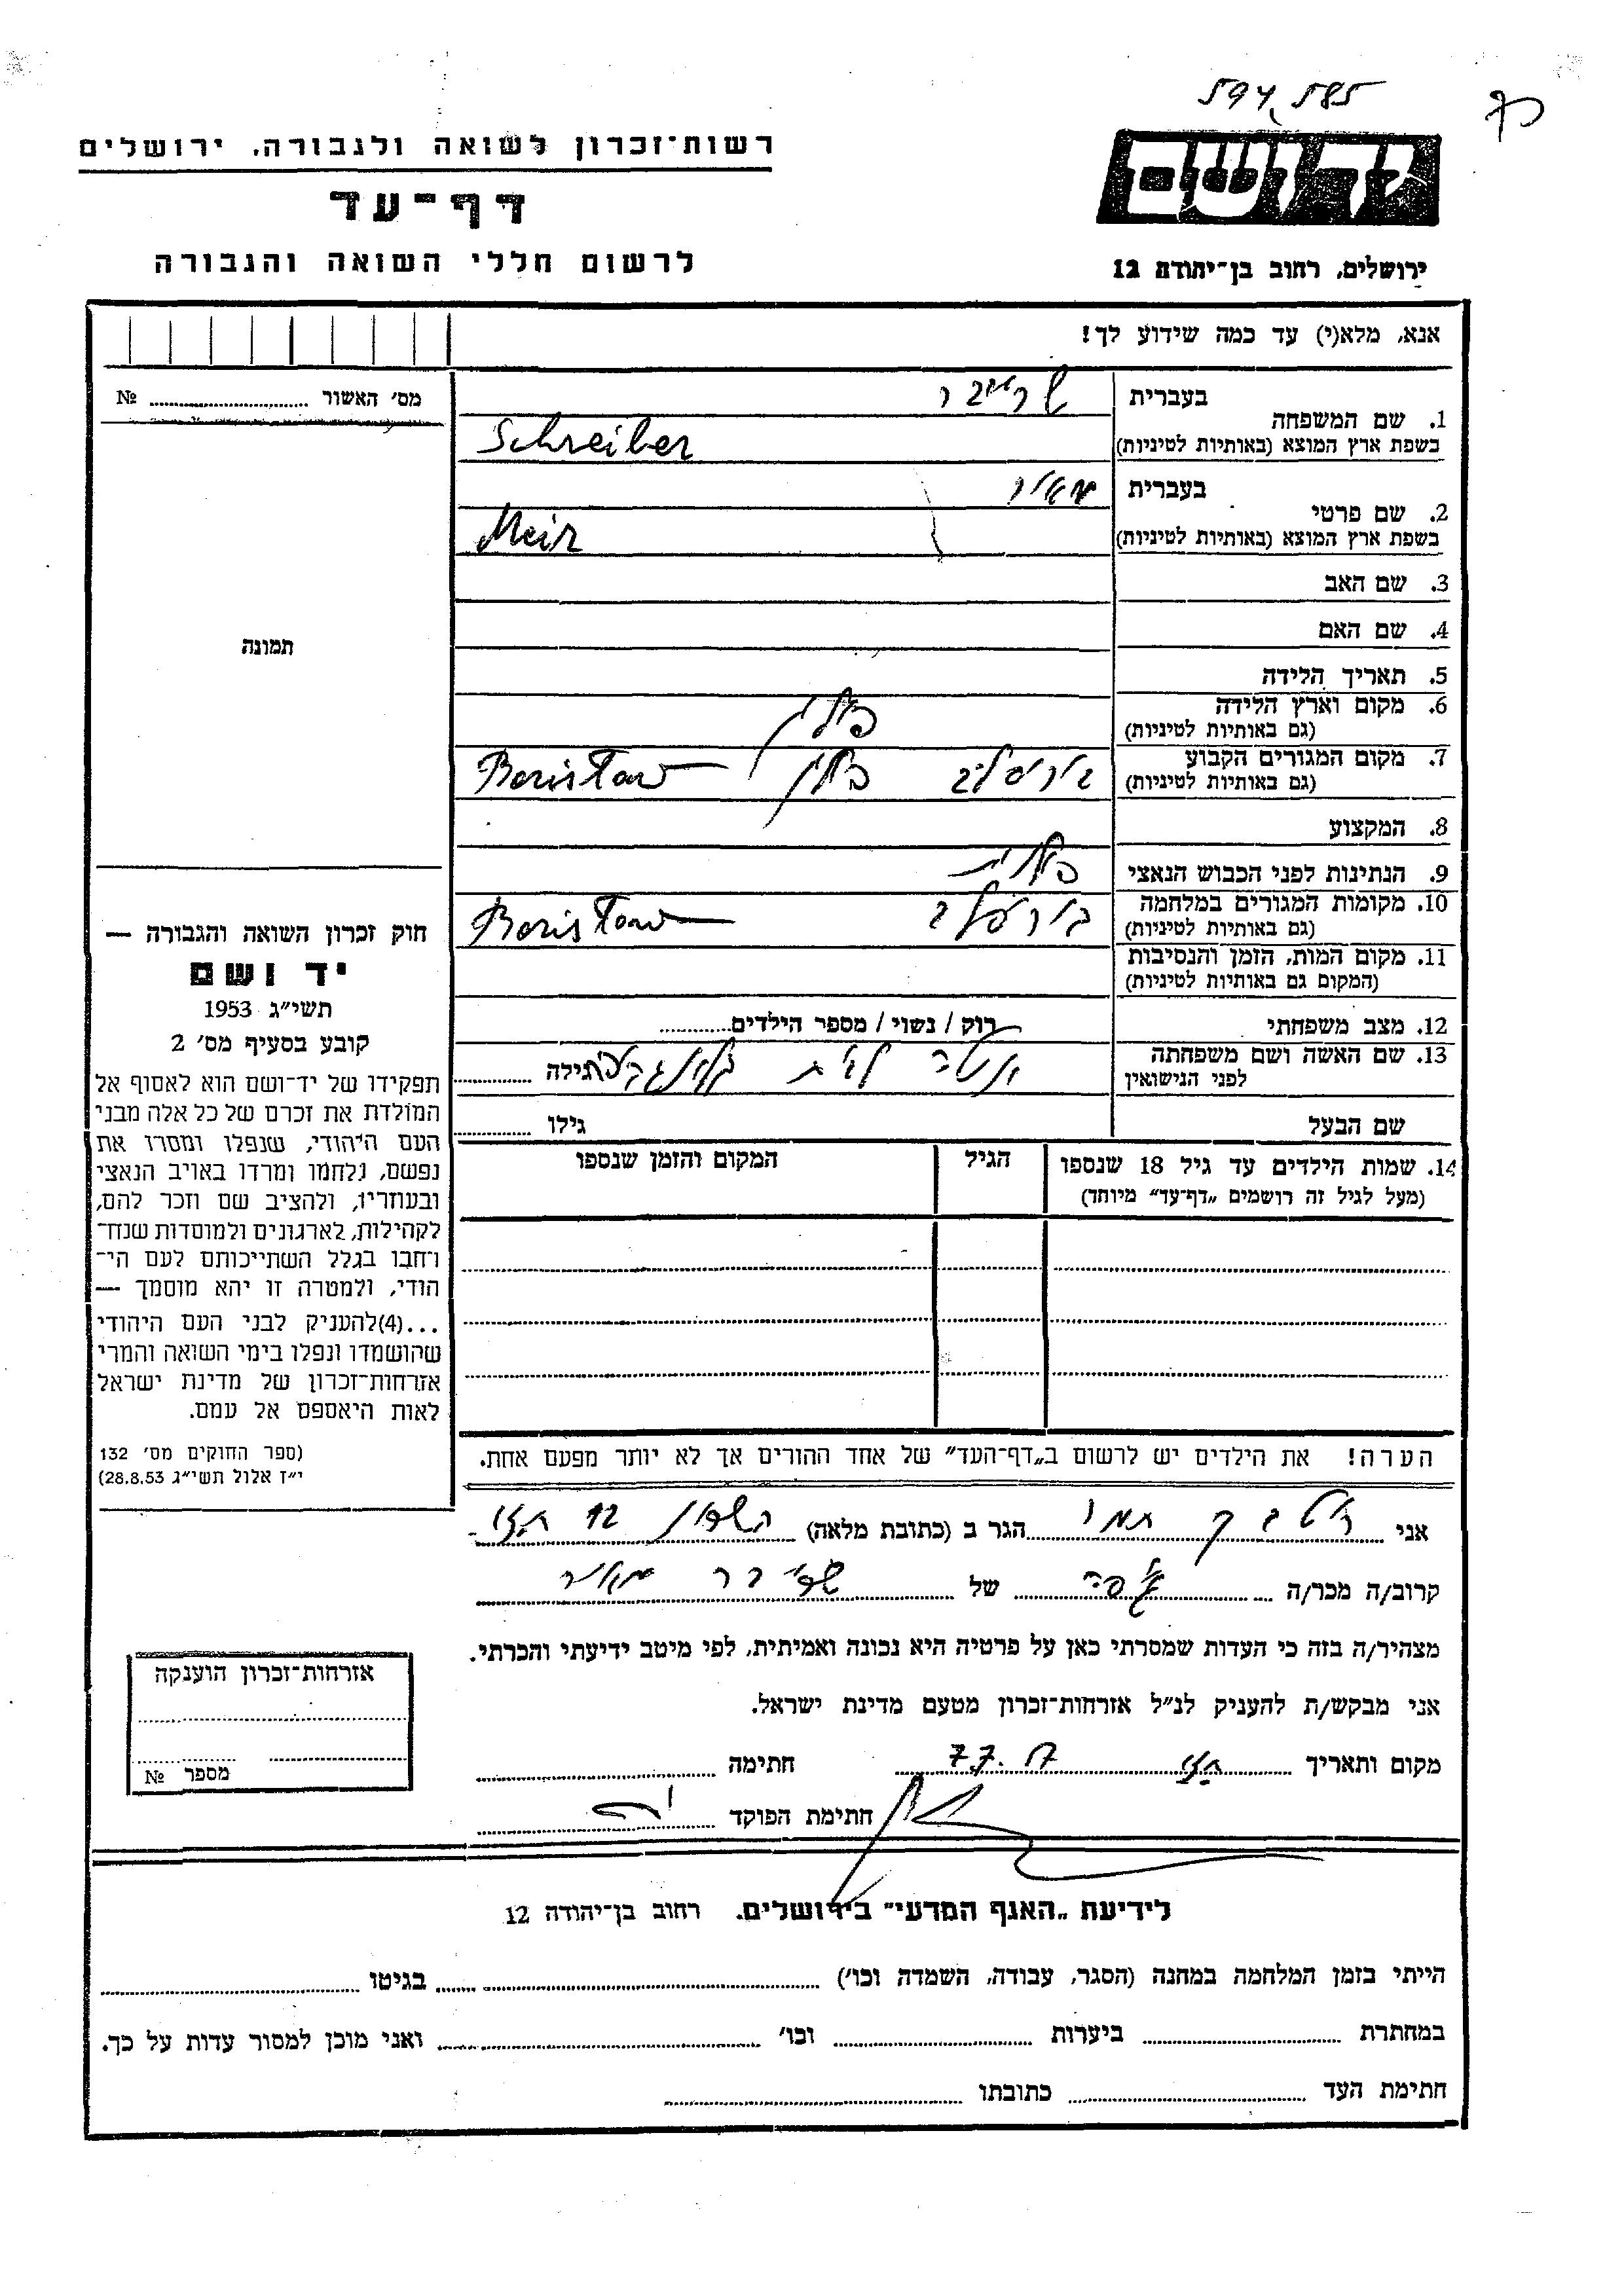 594585
רשות־זכרון לשואה ולגבורה, ירושלים
דף־עד
לרשום חללי השואה והגבורה
יד ושם
ירושלים, רחוב בן־יהודה 12
אנא, מלא(י) עד כמה שידוע לך!
מס׳ האשור № 
תמונה
1. שם המשפחה
בעברית שרייבר
בשפת ארץ המוצא (באותיות לטיניות) Schreiber
2. שם פרטי
בעברית מאיר
בשפת ארץ המוצא (באותיות לטיניות) Meir
3. שם האב
4. שם האם
5. תאריך הלידה
6. מקום וארץ הלידה פולין
(גם באותיות לטיניות)
7. מקום המגורים הקבוע בוריסלב פולין Borisław
(גם באותיות לטיניות)
8. המקצוע
9. הנתינות לפני הכבוש הנאצי פולנית
10. מקומות המגורים במלחמה בוריסלב Borisław
(גם באותיות לטיניות)
11. מקום המות, הזמן והנסיבות
(המקום גם באותיות לטיניות)
12. מצב משפחתי רוק / נשוי / מספר הילדים
13. שם האשה ושם משפחתה לבית גילה
לפני הנישואין
שם הבעל גילו
14. שמות הילדים עד גיל 18 שנספו
(מעל לגיל זה רושמים „דף־עד״ מיוחד)
הגיל
המקום והזמן שנספו
הערה! את הילדים יש לרשום ב„דף־העד״ של אחד ההורים אך לא יותר מפעם אחת.
חוק זכרון השואה והגבורה —
יד ושם
תשי״ג 1953
קובע בסעיף מס׳ 2
תפקידו של יד־ושם הוא לאסוף אל
המולדת את זכרם של כל אלה מבני
העם היהודי, שנפלו ומסרו את
נפשם, נלחמו ומרדו באויב הנאצי
ובעוזריו, ולהציב שם וזכר להם,
לקהילות, לארגונים ולמוסדות שנח־
רחבו בגלל השתייכותם לעם הי־
הודי, ולמטרה זו יהא מוסמך —
...(4)להעניק לבני העם היהודי
שהושמדו ונפלו בימי השואה והמרי
אזרחות־זכרון של מדינת ישראל
לאות היאספם אל עמם.
(ספר החוקים מס׳ 132
י״ז אלול תשי״ג 28.8.53)
אני תמר הגר ב (כתובת מלאה) השרון 12
קרוב/ה מכר/ה של שרייבר מאיר
מצהיר/ה בזה כי העדות שמסרתי כאן על פרטיה היא נכונה ואמיתית, לפי מיטב ידיעתי והכרתי.
אני מבקש/ת להעניק לנ״ל אזרחות־זכרון מטעם מדינת ישראל.
מקום ותאריך חתימה
חתימת הפוקד
אזרחות־זכרון הוענקה
מספר №
לידיעת „האגף המדעי״ בירושלים, רחוב בן־יהודה 12
הייתי בזמן המלחמה במחנה (הסגר, עבודה, השמדה וכו׳) בגיטו
במחתרת ביערות וכו׳ ואני מוכן למסור עדות על כך.
חתימת העד כתובתו